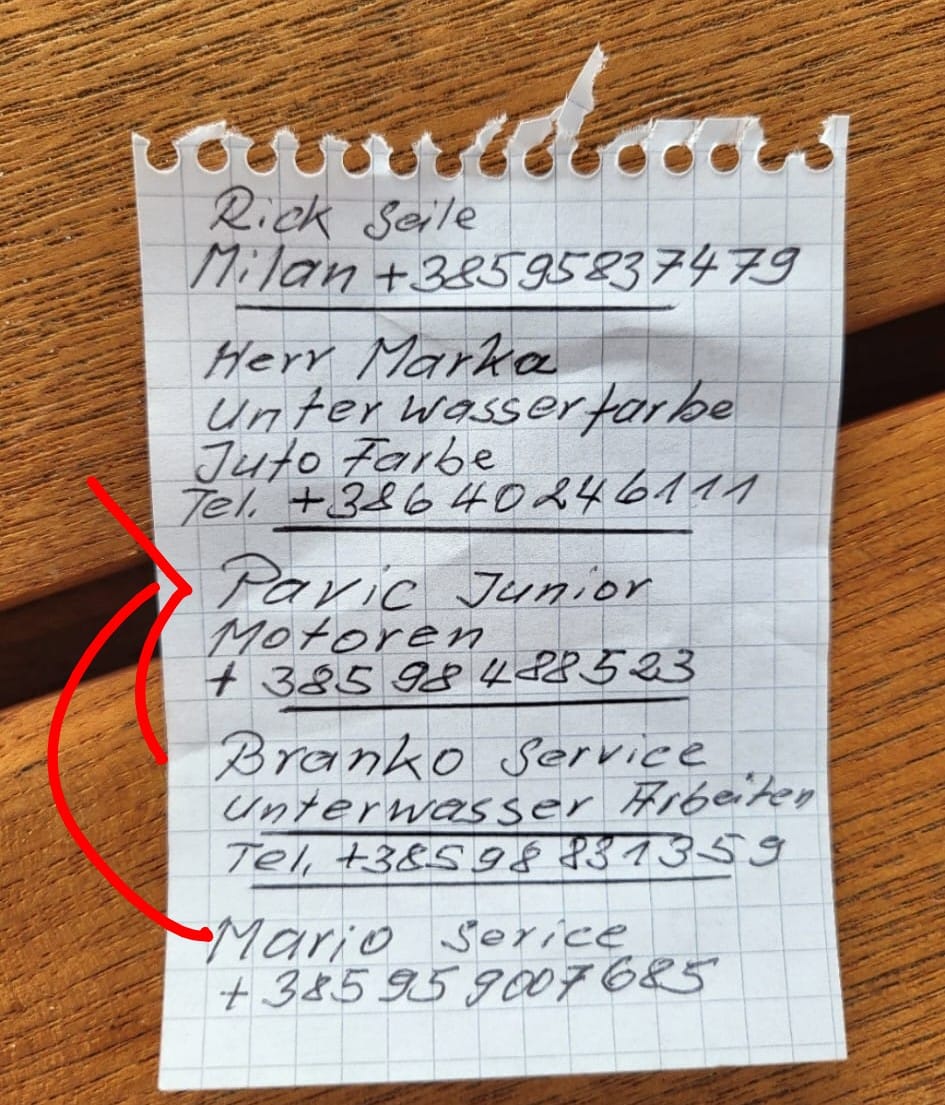 Rick Seile
Milan +38595837479
Herr Marka
Unterwasserfarbe
Juto Farbe
Tel. +386 40 246111
Pavic Junior
Motoren
+ 385 98 488523
Branko Service
Unterwasser Arbeiten
Tel. +385 98 831359
Mario Serice
+385 95 9007685